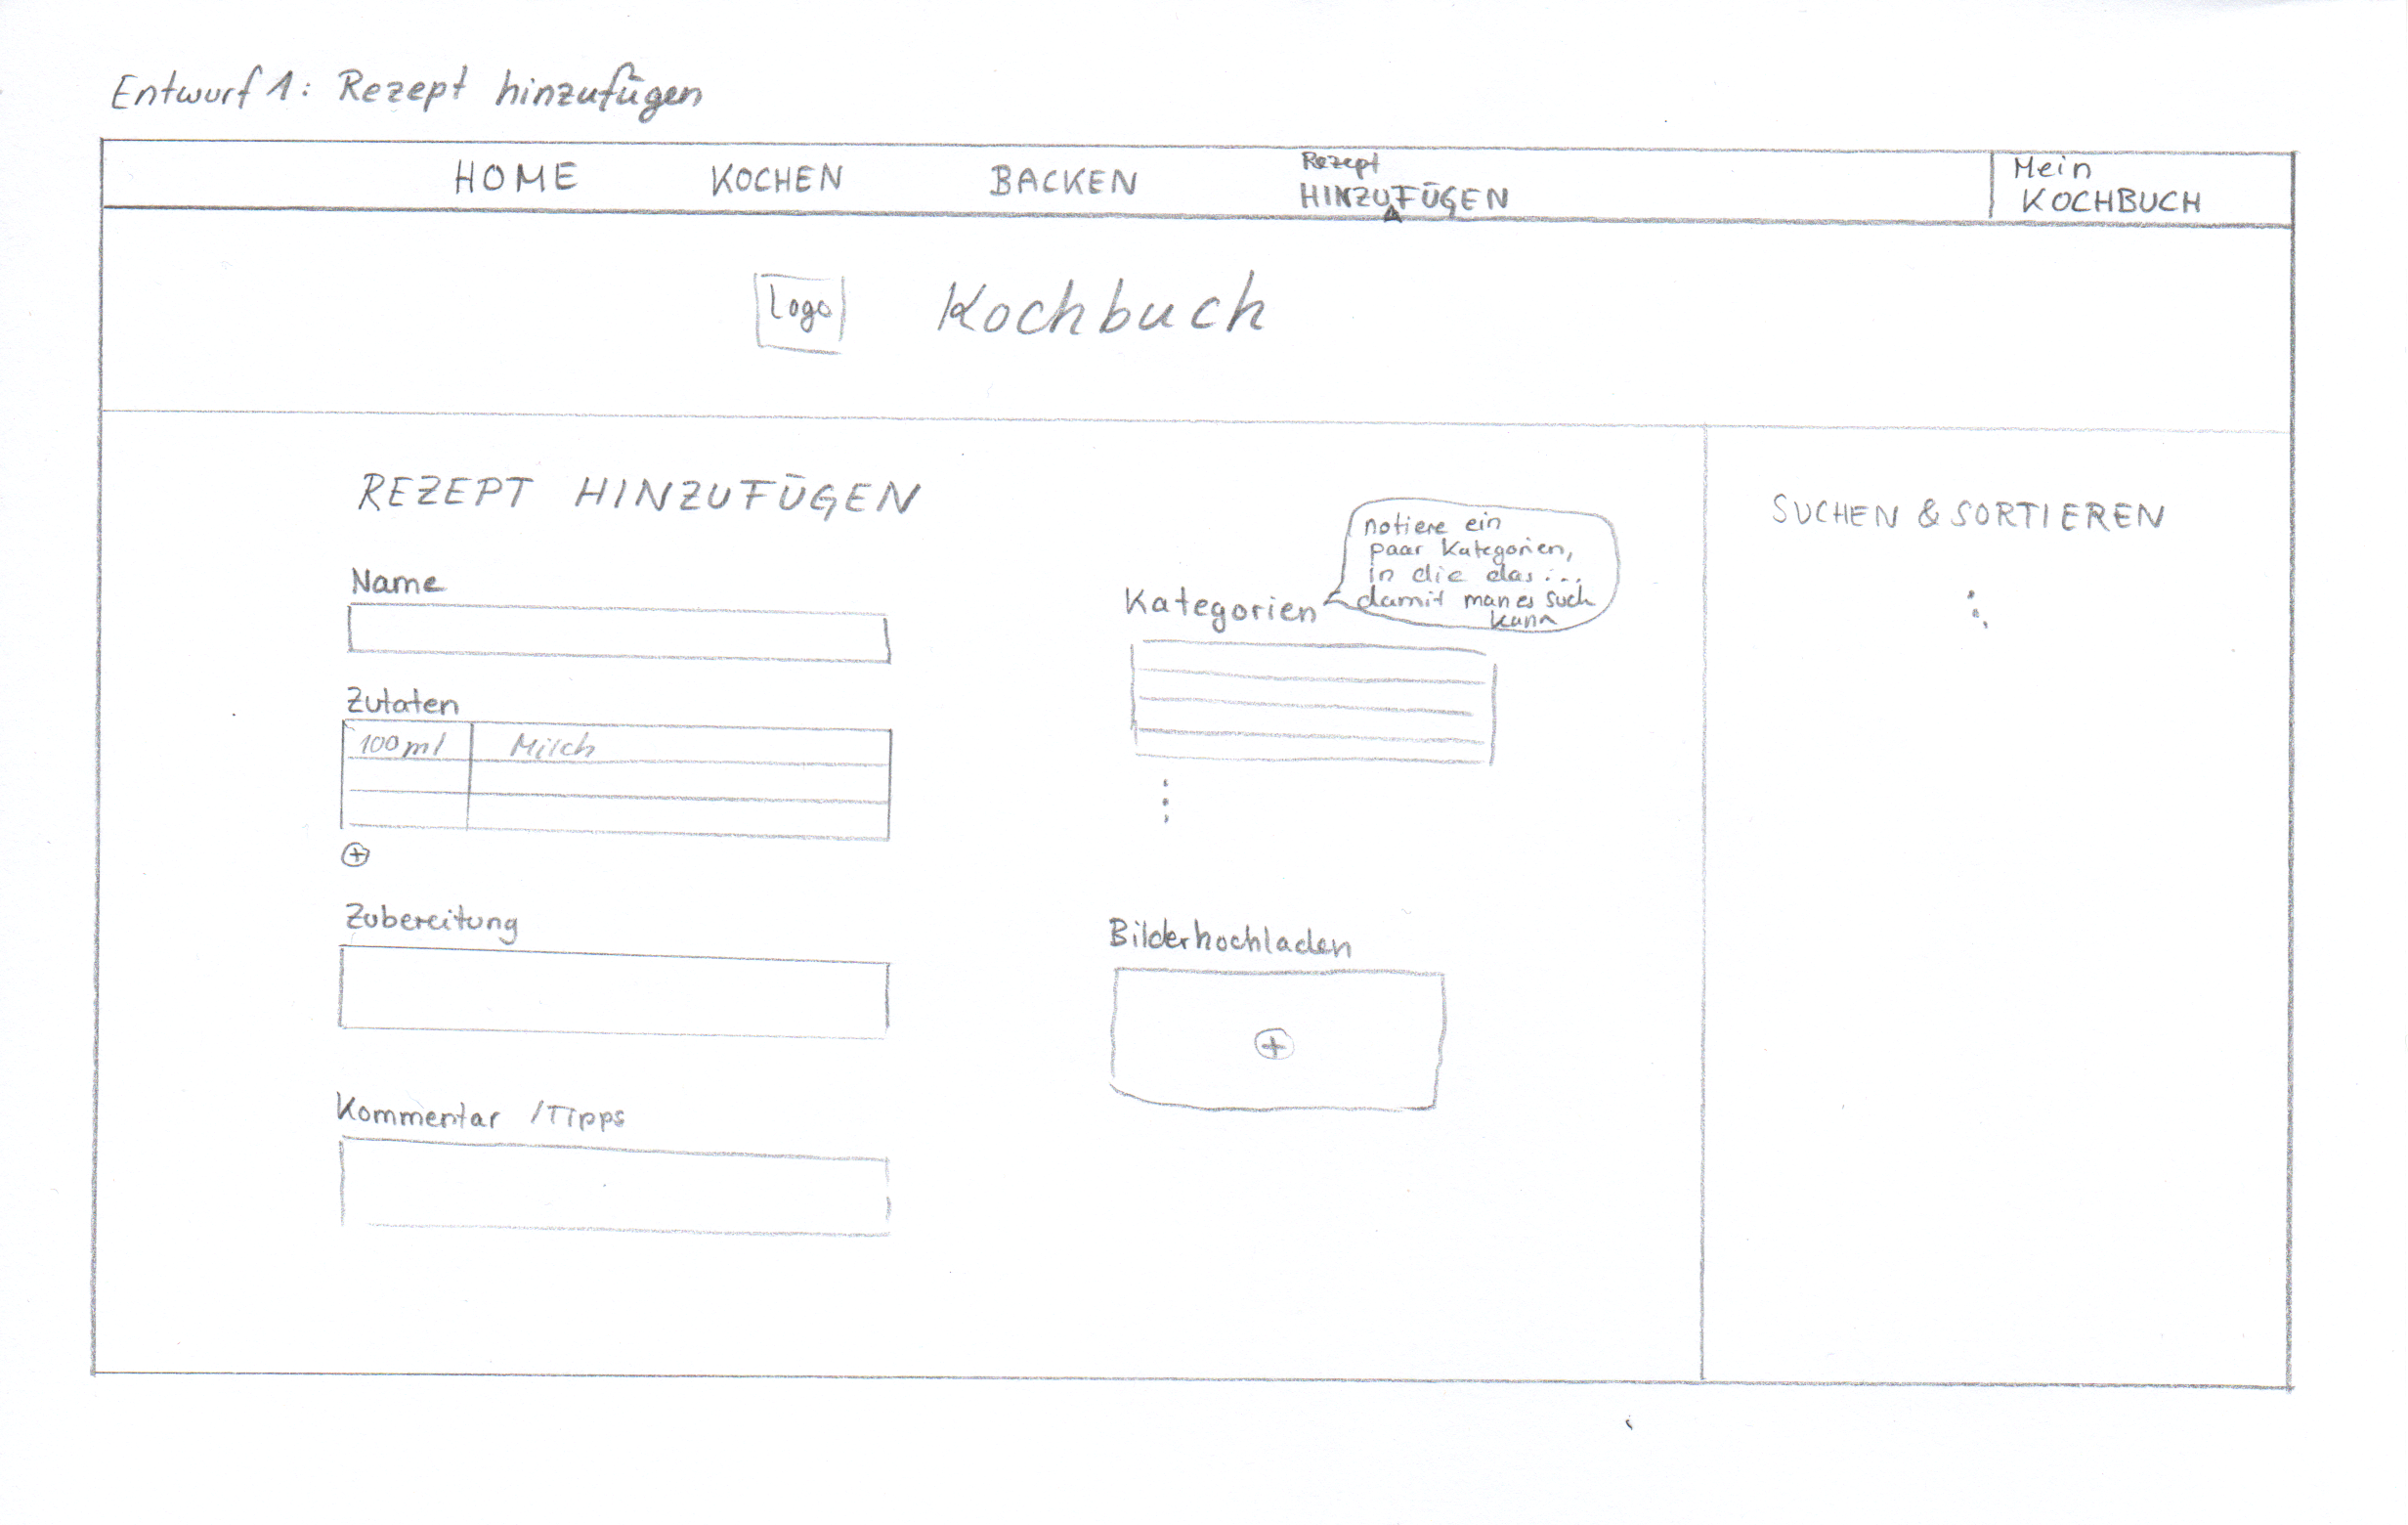 Entwurf 1: Rezept hinzufügen
HOME KOCHEN BACKEN Rezept HINZUFÜGEN Mein KOCHBUCH
Logo Kochbuch
REZEPT HINZUFÜGEN
Name
Zutaten
100ml Milch
Zubereitung
Kommentar /Tipps
Kategorien
notiere ein
paar Kategorien,
in die das ...
damit man es such
kann
Bilderhochladen
SUCHEN & SORTIEREN